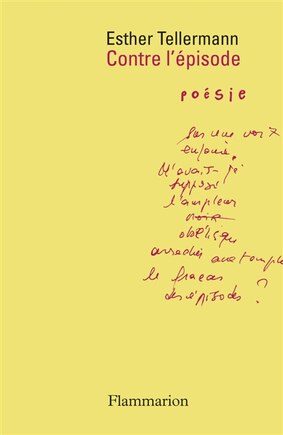 Esther Tellermann
Contre l'épisode
poésie
Pas une voix
enfouie.
N'avait-je
supposé
l'ampleur
noire
obélisque
arrachée aux temples
le fracas
des épisodes ?
Flammarion